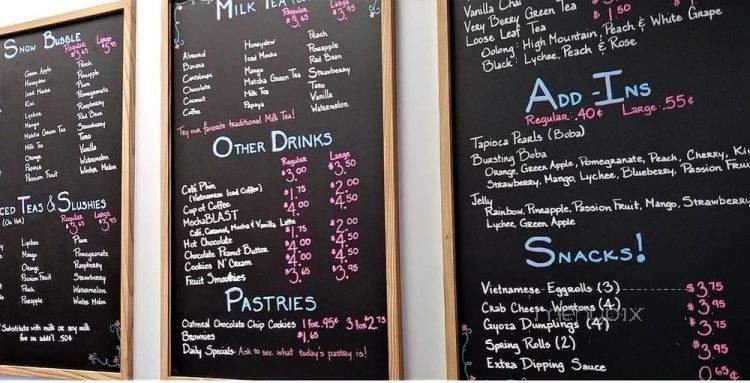 SNOW BUBBLE
Regular Large
$3.65 $5.95
Green Apple Peach
Honeydew Pineapple
Iced Mocha Plum
Kiwi Pomegranate
Lychee Raspberry
Mango Red Bean
Matcha Green Tea Strawberry
Milk Tea Taro
Orange Vanilla
Papaya Watermelon
Passion Fruit Winter Melon
ICED TEAS & SLUSHIES
(Or Hot) Regular Large
$3.65 $3.95
Lychee Plum
Mango Pomegranate
Orange Raspberry
Passion Fruit Strawberry
Peach Watermelon
Pineapple Winter Melon
Substitute with milk or soy milk
for an add'l .50¢
MILK TEA
Regular Large
Almond Honeydew Peach
Banana Iced Mocha Pineapple
Cantaloupe Mango Red Bean
Chocolate Matcha Green Tea Strawberry
Coconut Milk Tea Taro
Coffee Papaya Vanilla
Watermelon
Try our favorite traditional Milk Tea!
OTHER DRINKS
Regular Large
Café Phin $3.00 $3.50
(Vietnamese Iced Coffee)
Cup of Coffee $1.75 $2.00
MochaBLAST $4.00 $4.50
Café, Caramel, Mocha & Vanilla Latte
Hot Chocolate $1.75 $2.00
Chocolate Peanut Butter $4.00 $4.50
Cookies N' Cream $4.00 $4.50
Fruit Smoothies $3.65 $3.95
PASTRIES
Oatmeal Chocolate Chip Cookies 1 for .95¢ 3 for $2.75
Brownies $1.65
Daily Specials - Ask to see what today's pastry is!
Vanilla Chai
Very Berry Green Tea
Loose Leaf Tea $1.50
Oolong: High Mountain, Peach & White Grape
Black: Lychee, Peach & Rose
ADD-INS
Regular: .40¢ Large: .55¢
Tapioca Pearls (Boba)
Bursting Boba
Orange, Green Apple, Pomegranate, Peach, Cherry, Kiwi
Strawberry, Mango, Lychee, Blueberry, Passion Fruit
Jelly
Rainbow, Pineapple, Passion Fruit, Mango, Strawberry
Lychee, Green Apple
SNACKS!
Vietnamese Eggrolls (3) $3.75
Crab Cheese Wontons (4) $3.95
Gyoza Dumplings (4) $3.75
Spring Rolls (2) $3.95
Extra Dipping Sauce 0.65¢